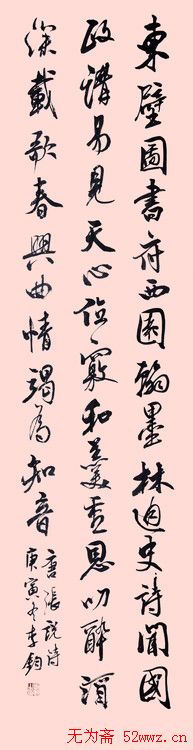 東壁圖書府西園翰墨林史詩聞國
政講易見天心位竊和羹重恩叨醉
深載歌春興曲情竭為知音
唐張說詩
庚寅冬李鈞
无为斋 52wwz.cn